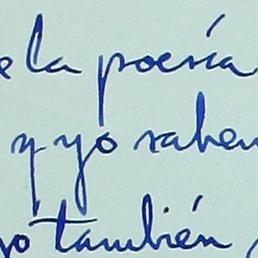 e la poesía
y yo saben
yó también